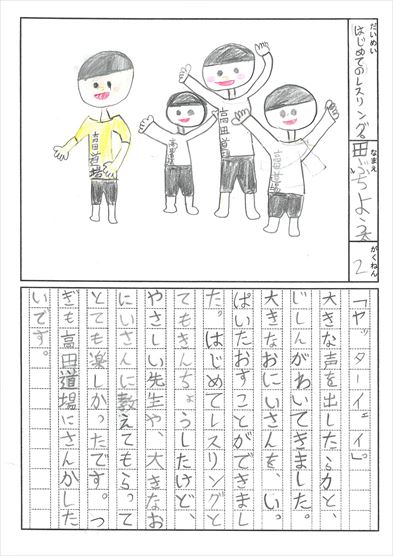 だいめい
はじめてのレスリング
なまえ
田ぶちよう
がくねん
2
高田道場
高田道場
高田道場
高田道場
「ヤッターイェイ。」
大きな声を出したら力と、
じしんがわいてきました。
大きなおにいさんを、いっ
ぱいたおすことができまし
た。はじめてレスリングと
てもきんちょうしたけど、
やさしい先生や、大きなお
にいさんに教えてもらって
とても楽しかったです。つ
ぎも高田道場にさんかした
いです。